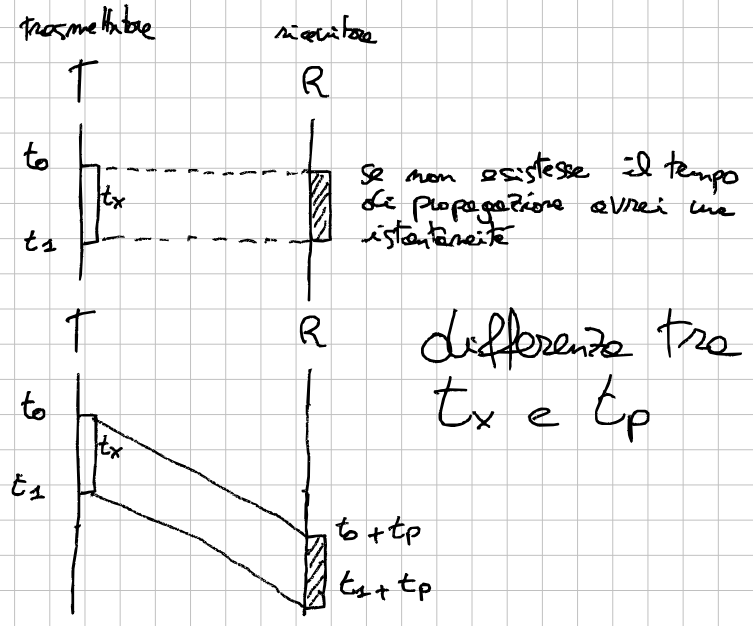 trasmettitore
ricevitore
T
R
t0
tx
t1
se non esistesse il tempo
di propagazione avrei una
istantaneità
T
R
differenza tra
tx e tp
t0
tx
t1
t0 + tp
t1 + tp